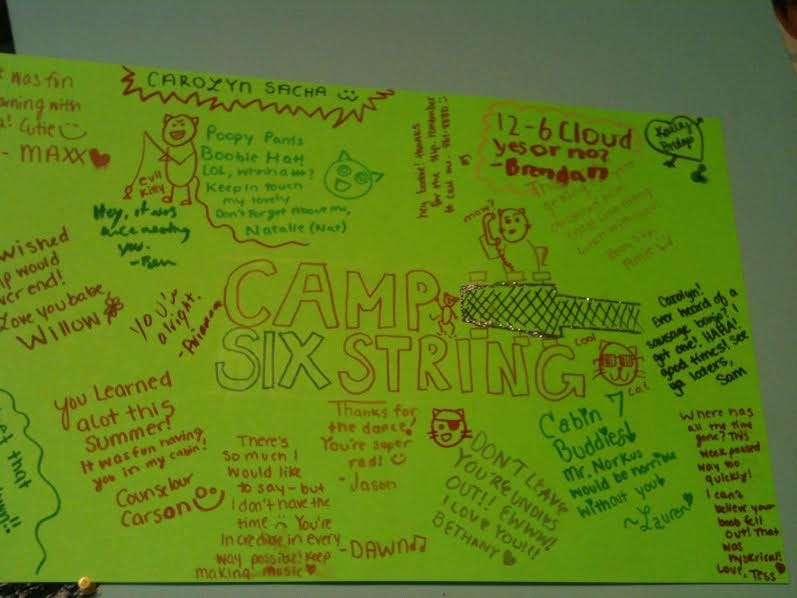 was fun
arning with
! Cutie
- MAXX
CAROLYN SACHA
evil
Kitty
Poopy Pants
Boobie Hatt
LOL, whhhatt?
Keep in touch
my lovely
Don't Forget Above me,
Natalie (Nat)
Hey, it was
nice meeting
you.
-Ben
hey babe! thanks
for the slip. remember
to call me
12-6 Cloud
yes or no?
-Brendan
Kailey
wished
p would
ver end!
Love you babe,
Willow
You're
alright.
-Brianna
mom?
CAMP
SIX STRING
cool
cat
Carolyn!
Ever heard of a
sausage banjo? I
got one! HAHA!
good times! See
ya laters,
Sam
You Learned
alot this
Summer!
It was fun having
you in my cabin!
Counselour
Carson
et that
There's
So much I
Would like
to say - but
I don't have the
time You're
Incredible in every
way possible! Keep
making music
-DAWN
Thanks for
the dance!
You're super
rad!
- Jason
DON'T LEAVE
YOU'RE UNDIES
OUT!! EWWW!
I LOVE YOU!!!
BETHANY
Cabin 7
Buddies!
Mr. Norkus
would be horrible
without you!
~Lauren
Where has
all the time
gone? This
week passed
way too
quickly!
I can't
believe your
boob fell
out! That
was
hysterical!
Love, Tess